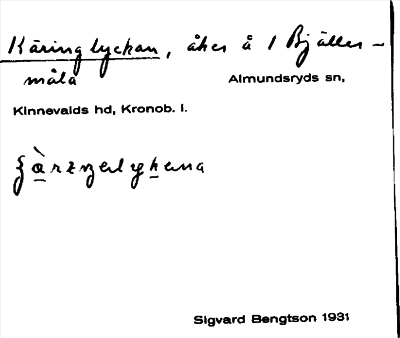 Käringlyckan, åker å 1 Bjäller-
måla Almundsryds sn,
Kinnevalds hd, Kronob. l.
Sigvard Bengtson 1931